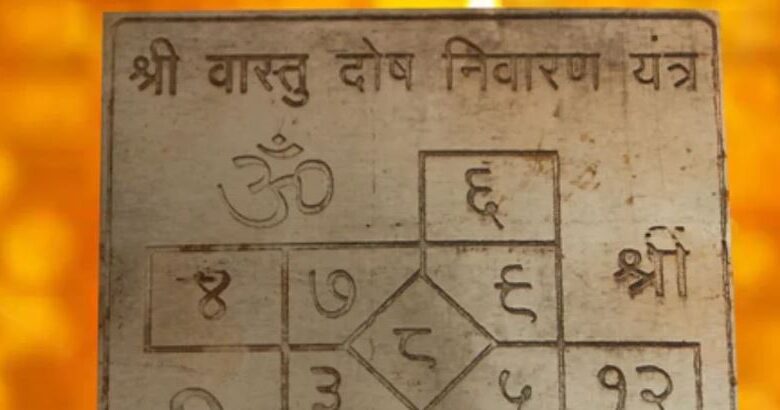 श्री वास्तु दोष निवारण यंत्र
ॐ
६
श्री
४ ७ ९
८
३ ५ १२